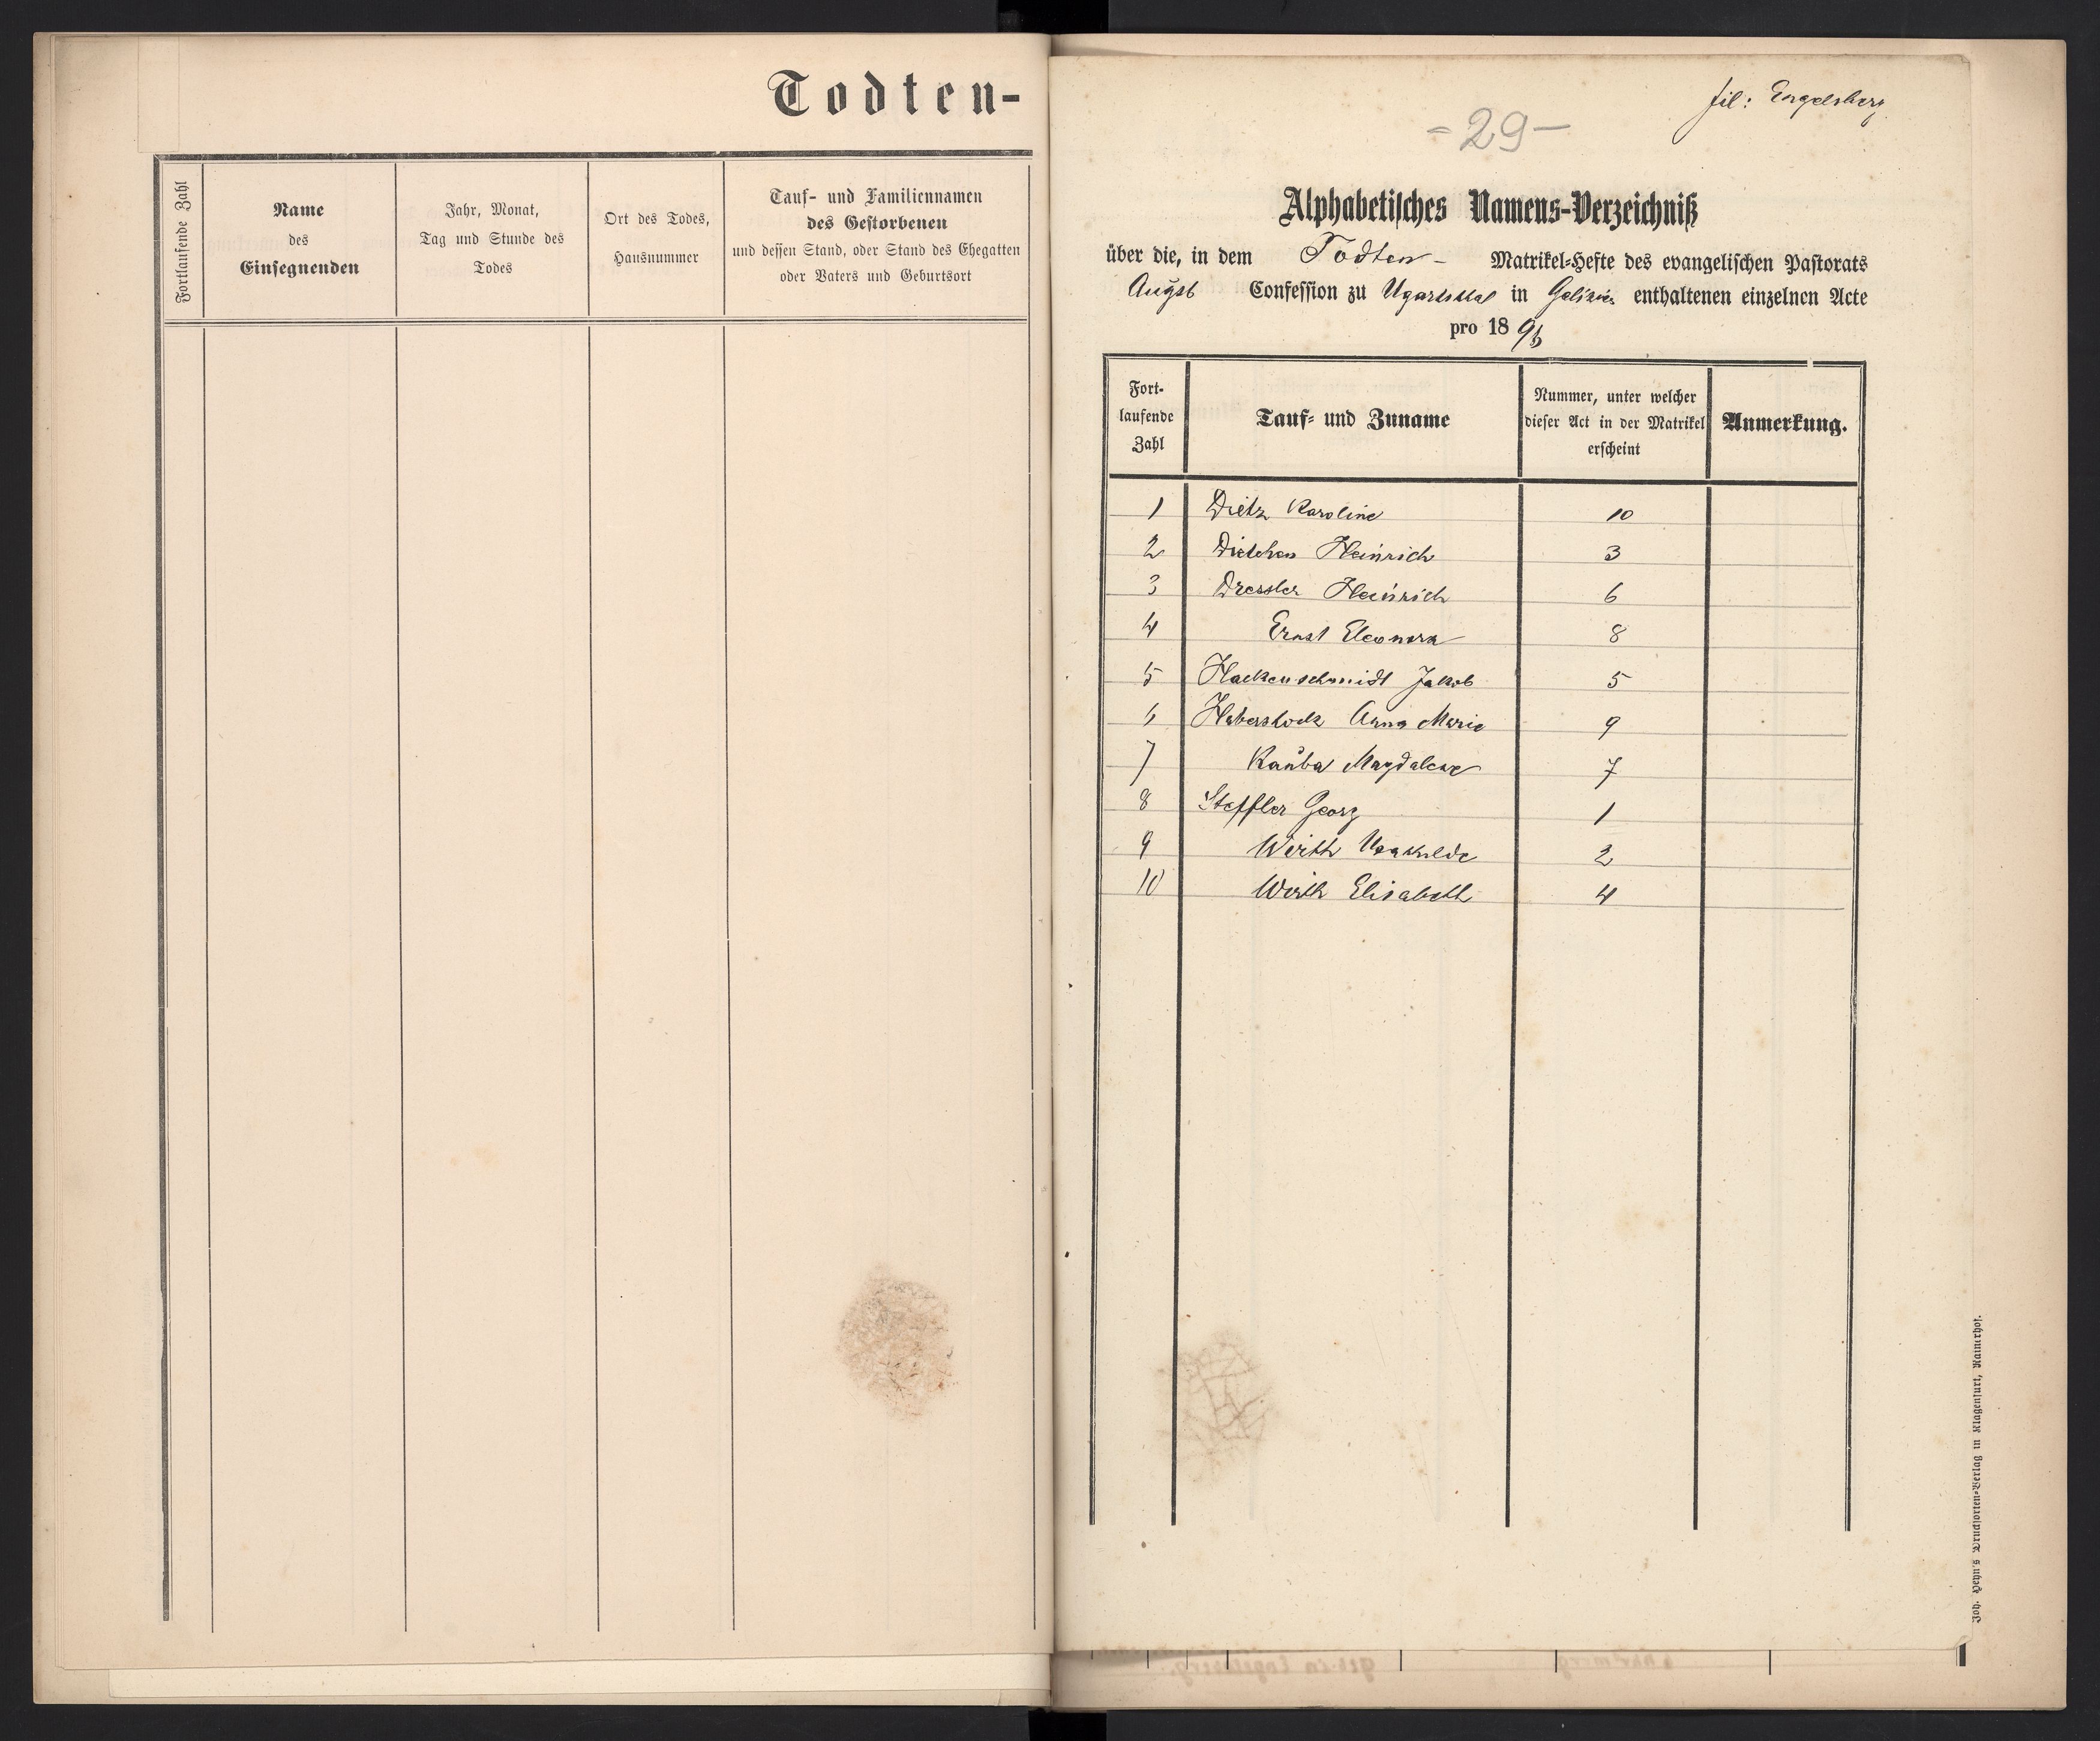 Todten-
Fortlaufende Zahl
Name
des
Einsegnenden
Jahr, Monat,
Tag und Stunde des
Todes
Ort des Todes,
Hausnummer
Tauf- und Familiennamen
des Gestorbenen
und dessen Stand, oder Stand des Ehegatten
oder Vaters und Geburtsort
fil: Engelsberg
-29-
Alphabetisches Namens-Verzeichniß
über die, in dem Todten- Matrikel-Hefte des evangelischen Pastorats
Augsb Confession zu Ugartsthal in Galizien enthaltenen einzelnen Acte
pro 18
Fort-
laufende
Zahl
Tauf- und Zuname
Nummer, unter welcher
dieser Act in der Matrikel
erscheint
Anmerkung.
1 Dietz Karoline 10
2 Heinrich 3
3 Dressler Heinrich 6
4 Ernst Eleonora 8
5 Hackenschmidt Jakob 5
6 Haberstock Anna Marie 9
7 Kauba Magdalene 7
8 Steffler Georg 1
9 Wirth 2
10 Wirth Elisabeth 4
Joh. Heyn's Drucksorten-Verlag in Klagenfurt, Rainerhof.